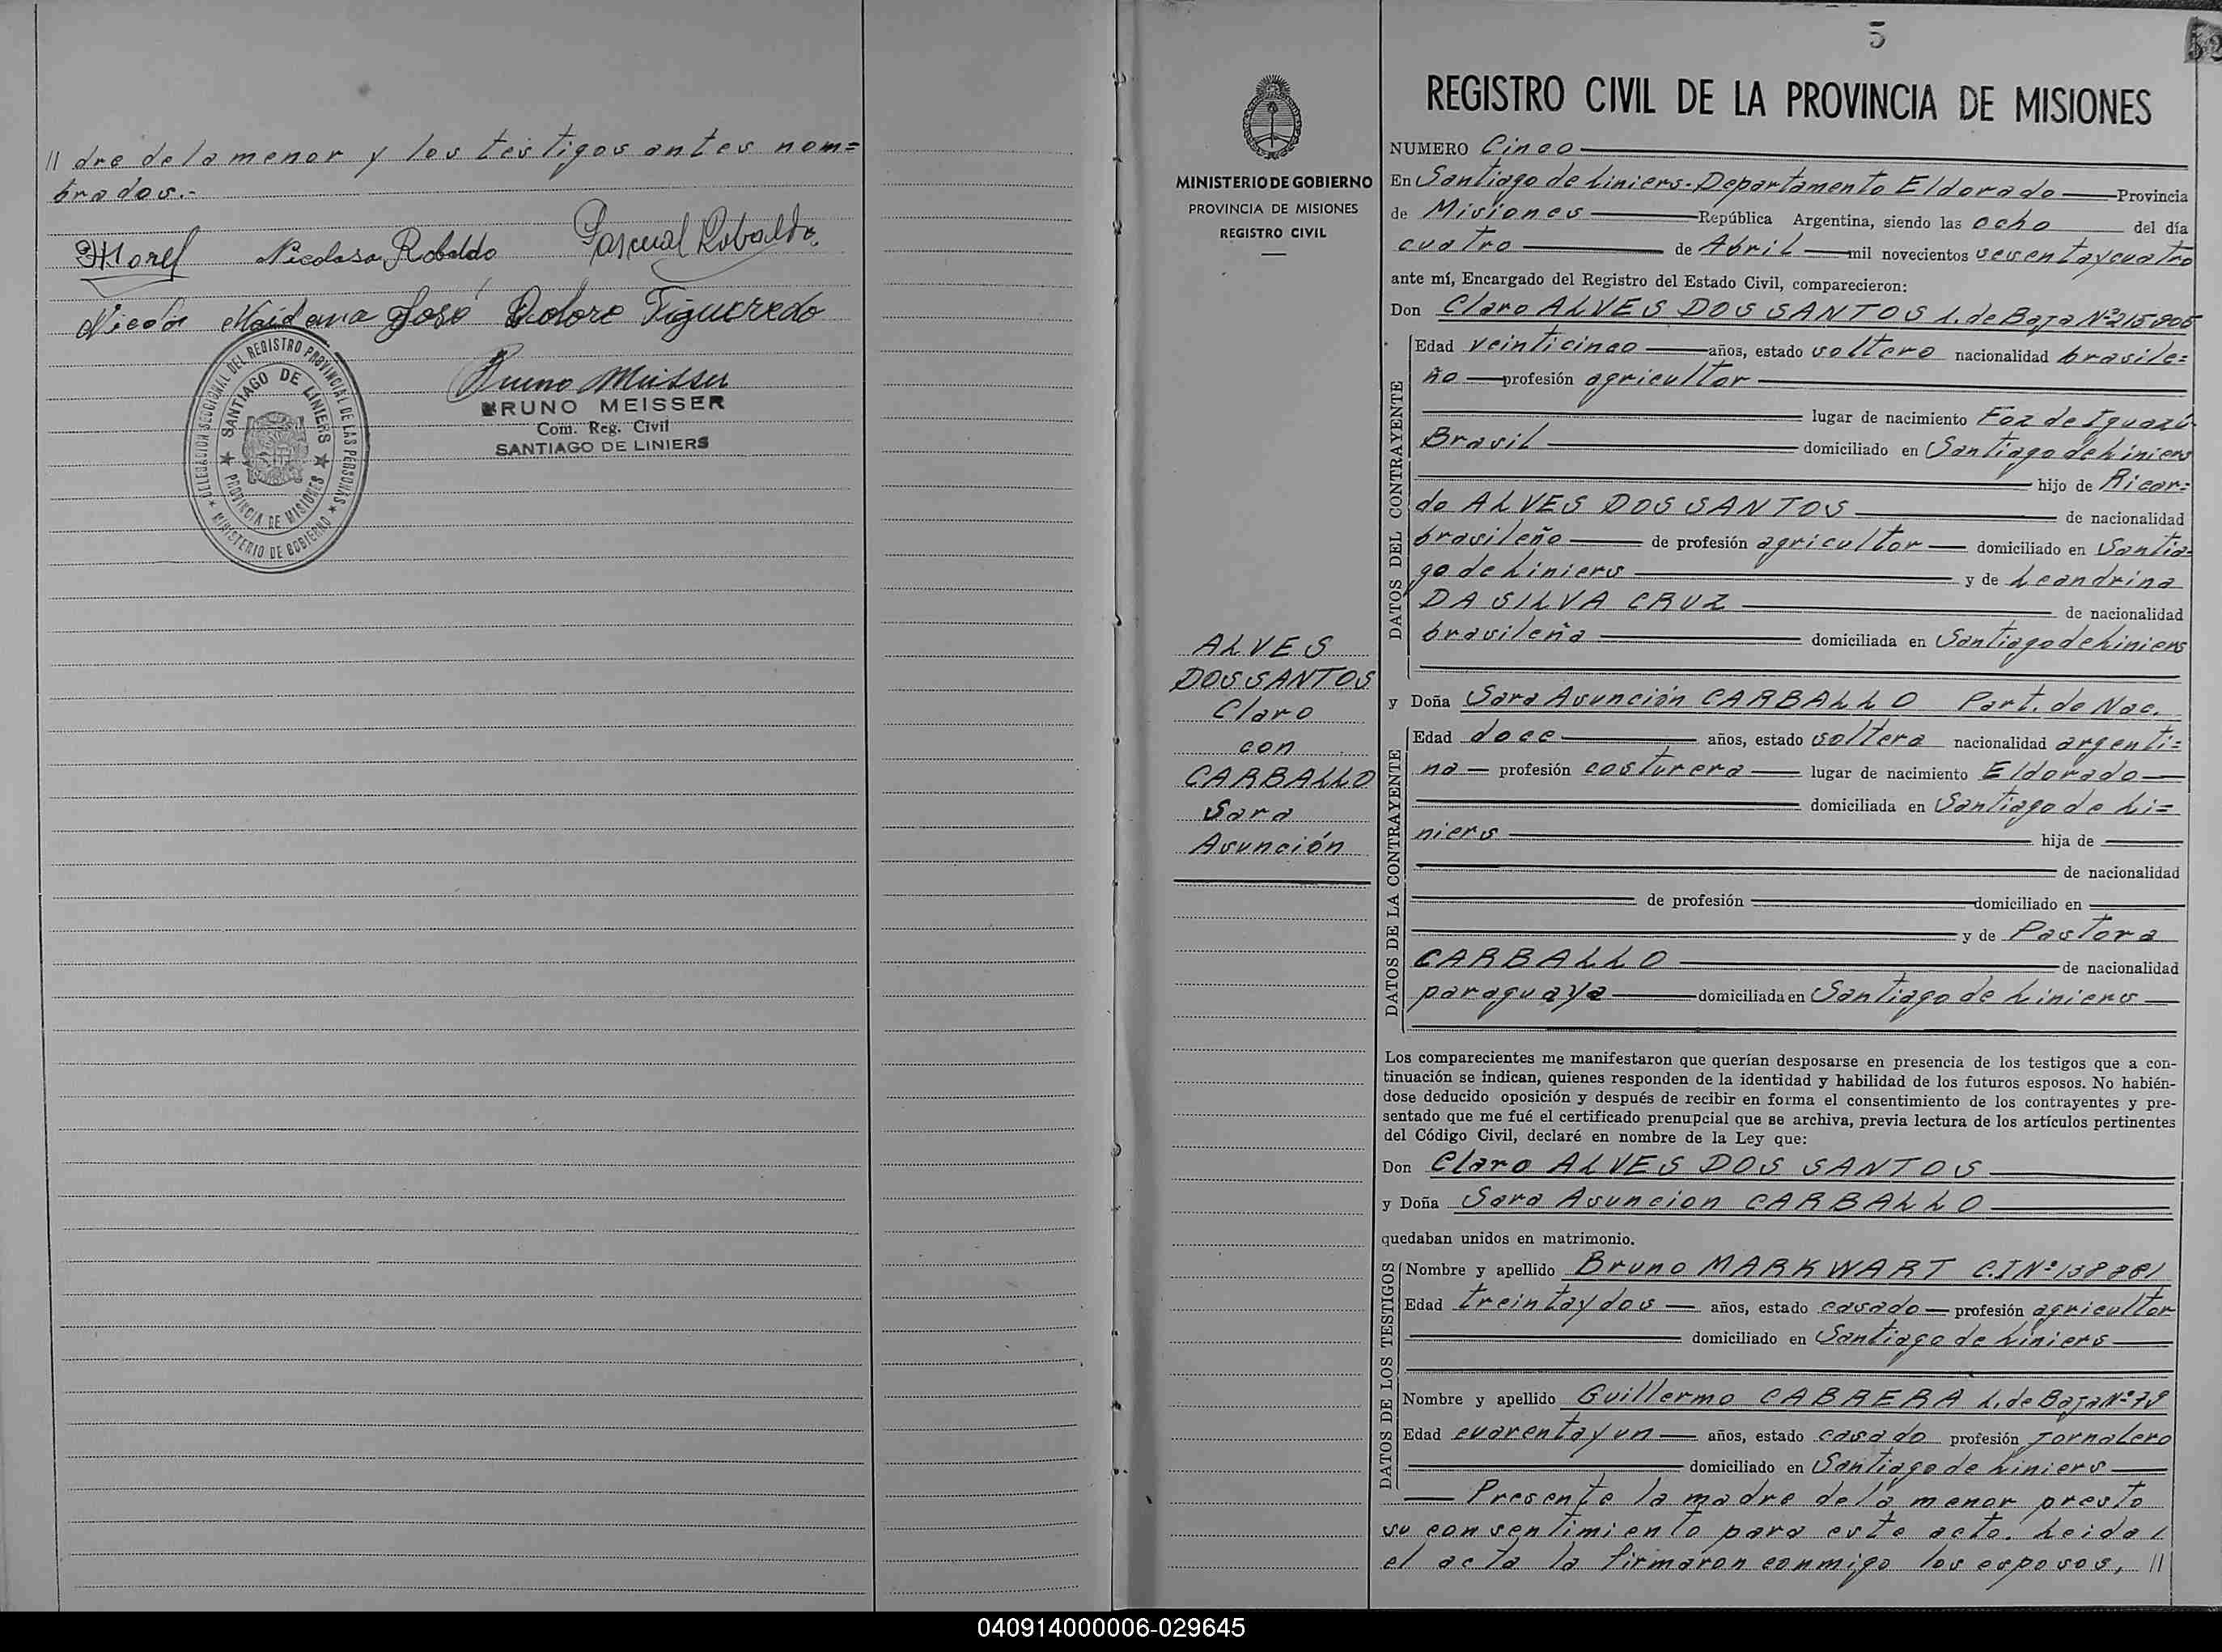 // dre de la menor y los testigos antes nom=
brados.-
Morel Nicolasa Robaldo Pascual Robaldo
Maidana José Dolore Figueredo
DELEGACION SECCIONAL DEL REGISTRO PROVINCIAL DE LAS PERSONAS
SANTIAGO DE LINIERS
PROVINCIA DE MISIONES
MINISTERIO DE GOBIERNO
Bruno Meisser
BRUNO MEISSER
Com. Reg. Civil
SANTIAGO DE LINIERS
MINISTERIO DE GOBIERNO
PROVINCIA DE MISIONES
REGISTRO CIVIL
ALVES
DOS SANTOS
Claro
con
CARBALLO
Sara
Asunción
5
REGISTRO CIVIL DE LA PROVINCIA DE MISIONES
NUMERO Cinco
En Santiago de Liniers-Departamento Eldorado Provincia
de Misiones República Argentina, siendo las ocho del día
cuatro de Abril mil novecientos sesenta y cuatro
ante mí, Encargado del Registro del Estado Civil, comparecieron:
Don Claro ALVES DOS SANTOS L. de Baja Nº
DATOS DEL CONTRAYENTE
Edad veinticinco años, estado soltero nacionalidad brasile=
ño profesión agricultor
lugar de nacimiento Foz de Iguazú-
Brasil domiciliado en Santiago de Liniers
hijo de Ricar=
do ALVES DOS SANTOS de nacionalidad
brasileño de profesión agricultor domiciliado en Santia=
go de Liniers y de Leandrina
DA SILVA CRUZ de nacionalidad
brasileña domiciliada en Santiago de Liniers
y Doña Sara Asunción CARBALLO Part. de Nac.
DATOS DE LA CONTRAYENTE
Edad doce años, estado soltera nacionalidad argenti=
na profesión costurera lugar de nacimiento Eldorado
domiciliada en Santiago de Li=
niers hija de
de nacionalidad
de profesión domiciliado en
y de Pastora
CARBALLO de nacionalidad
paraguaya domiciliada en Santiago de Liniers
Los comparecientes me manifestaron que querían desposarse en presencia de los testigos que a con-
tinuación se indican, quienes responden de la identidad y habilidad de los futuros esposos. No habién-
dose deducido oposición y después de recibir en forma el consentimiento de los contrayentes y pre-
sentado que me fué el certificado prenupcial que se archiva, previa lectura de los artículos pertinentes
del Código Civil, declaré en nombre de la Ley que:
Don Claro ALVES DOS SANTOS
y Doña Sara Asuncion CARBALLO
quedaban unidos en matrimonio.
DATOS DE LOS TESTIGOS
Nombre y apellido Bruno MARKWART C.I Nº
Edad treinta y dos años, estado casado profesión agricultor
domiciliado en Santiago de Liniers
Nombre y apellido Guillermo CABRERA L. de Baja Nº
Edad cuarenta y un años, estado casado profesión Jornalero
domiciliado en Santiago de Liniers
Presente la madre de la menor presto
su consentimiento para este acto. Leida
el acta la firmaron conmigo los esposos, //
040914000006-029645